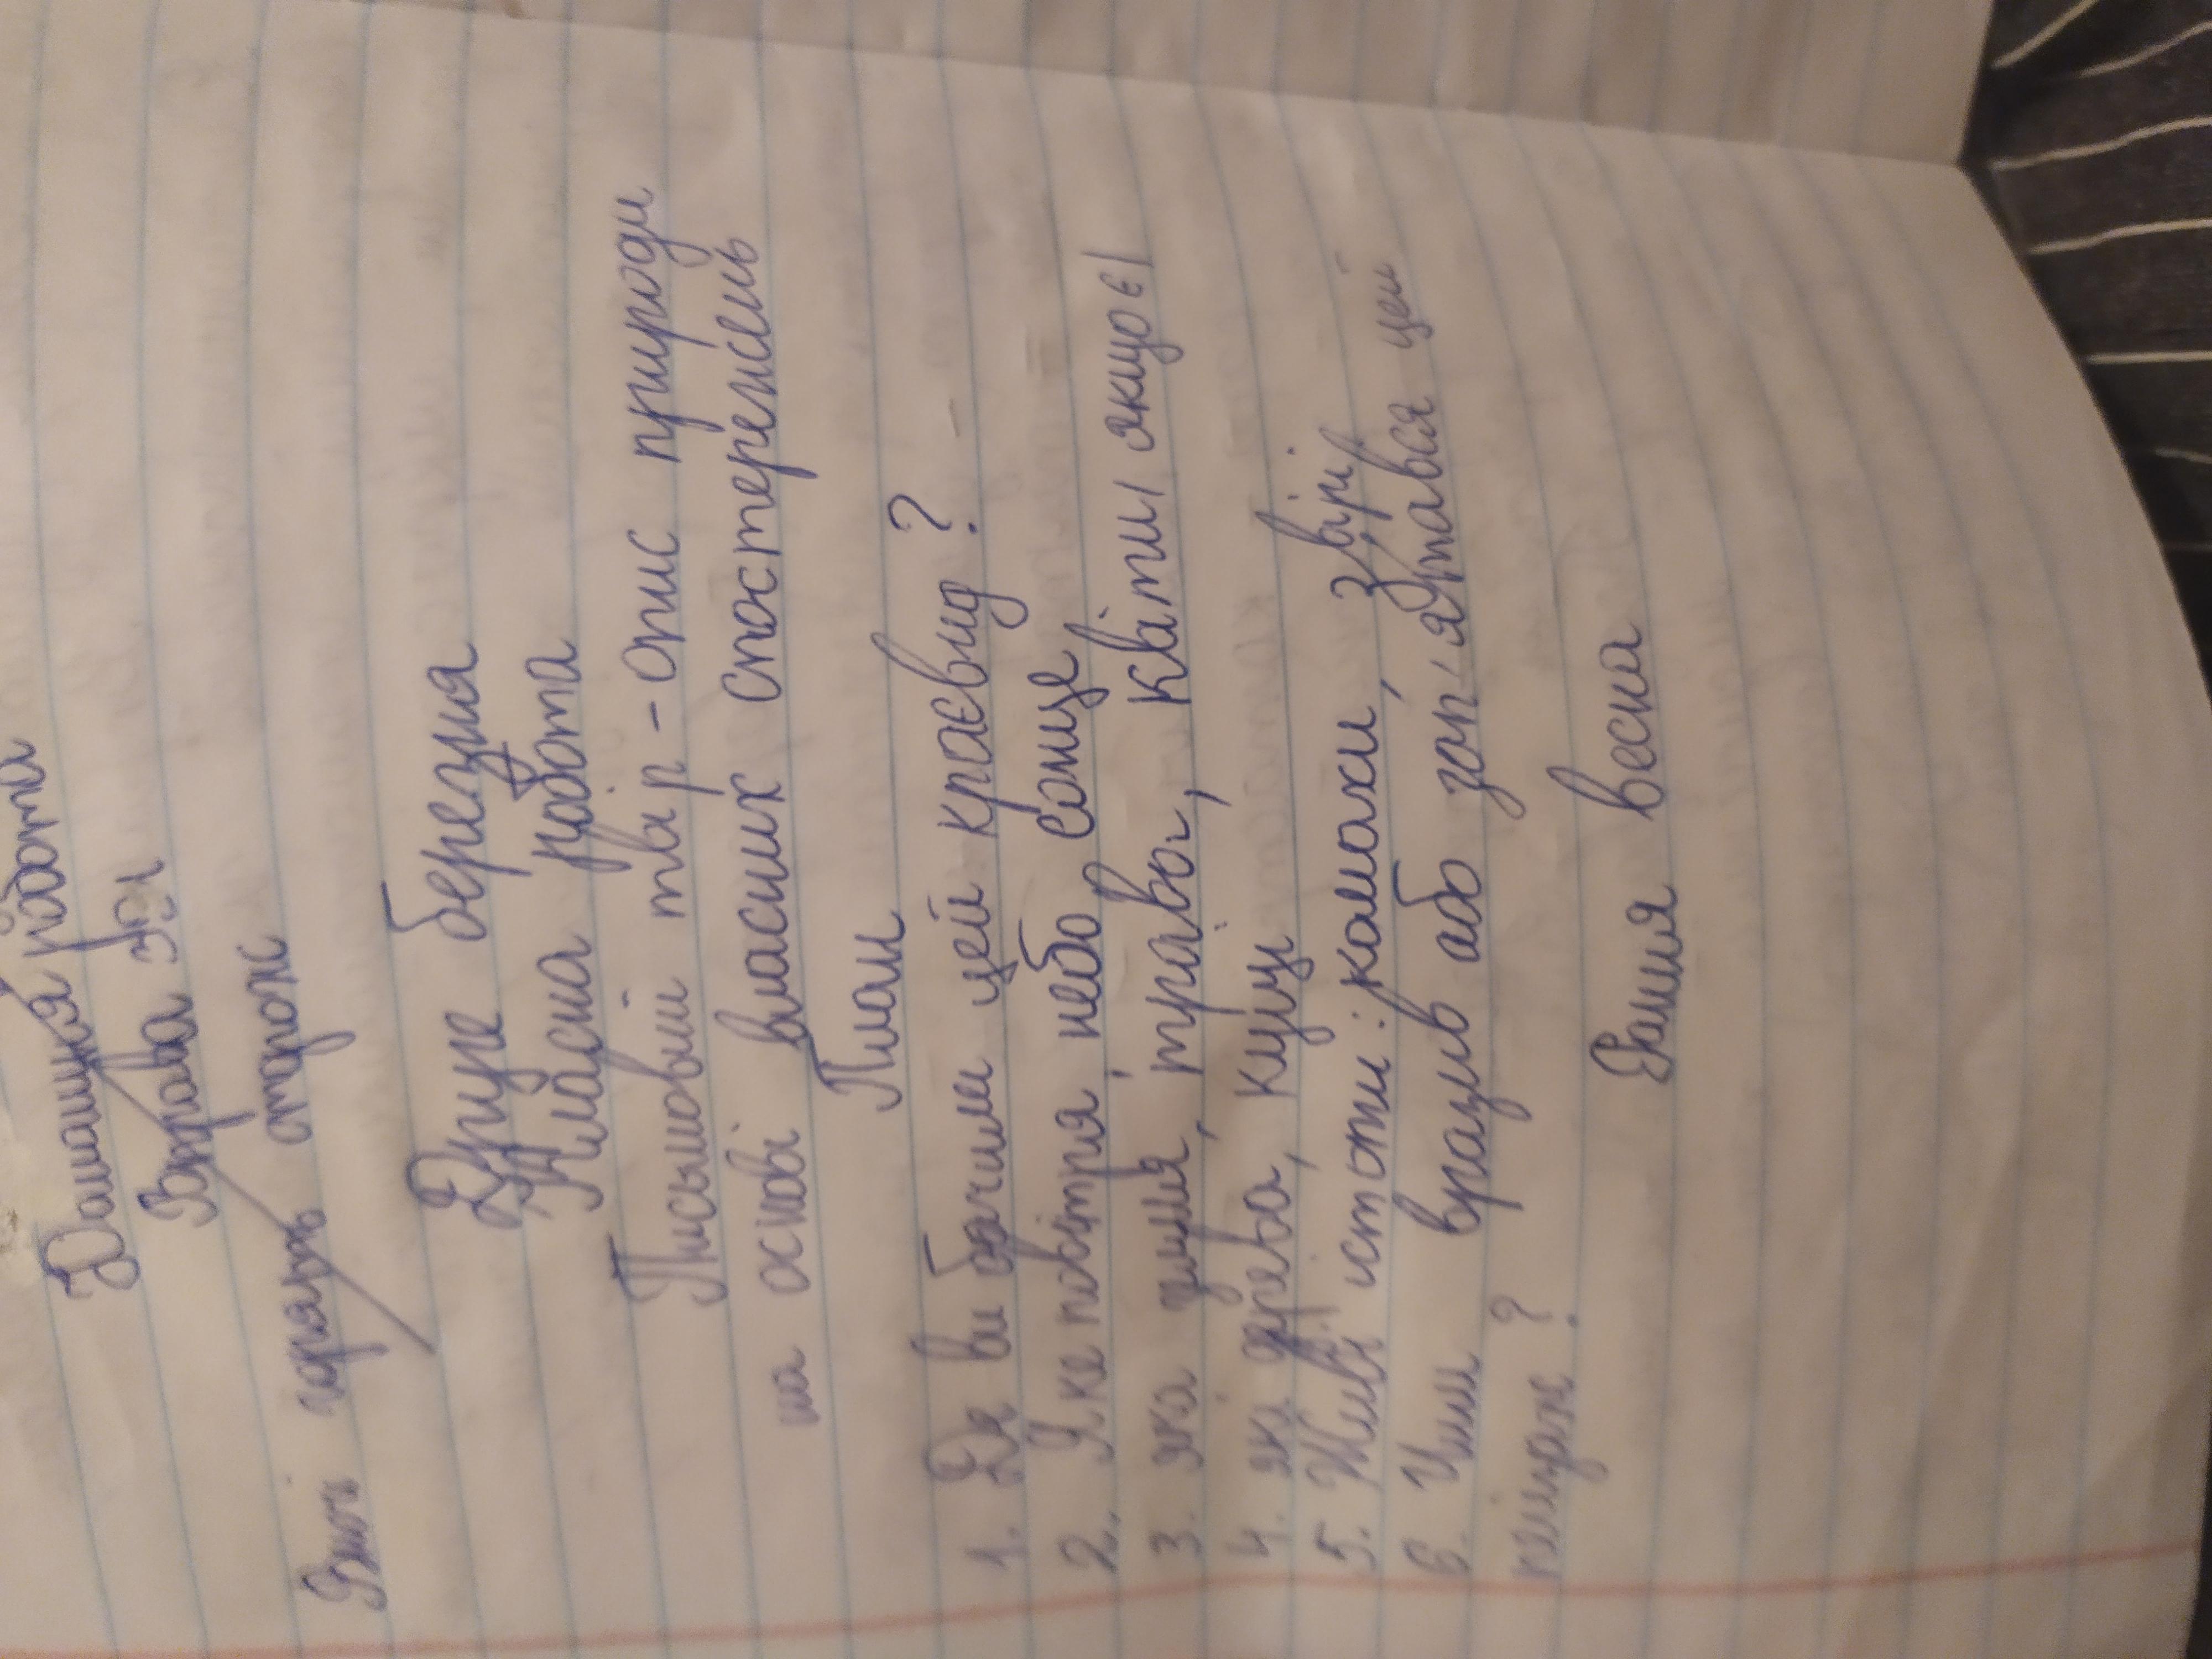 Домашня робота
Вправа
Вночі сторож
Друге березня
Класна робота
Письмовий твір-опис природи
на основі власних спостережень
План
1. Де ви бачили цей краєвид?
2. Яке повітря, небо, сонце
3. яка земля, трава, квіти (якщо є)
4. які дерева, кущі
5. Живі істоти: комахи, звірі
6. Чим вразив або зап'ятався цей
пейзаж?
Рання весна